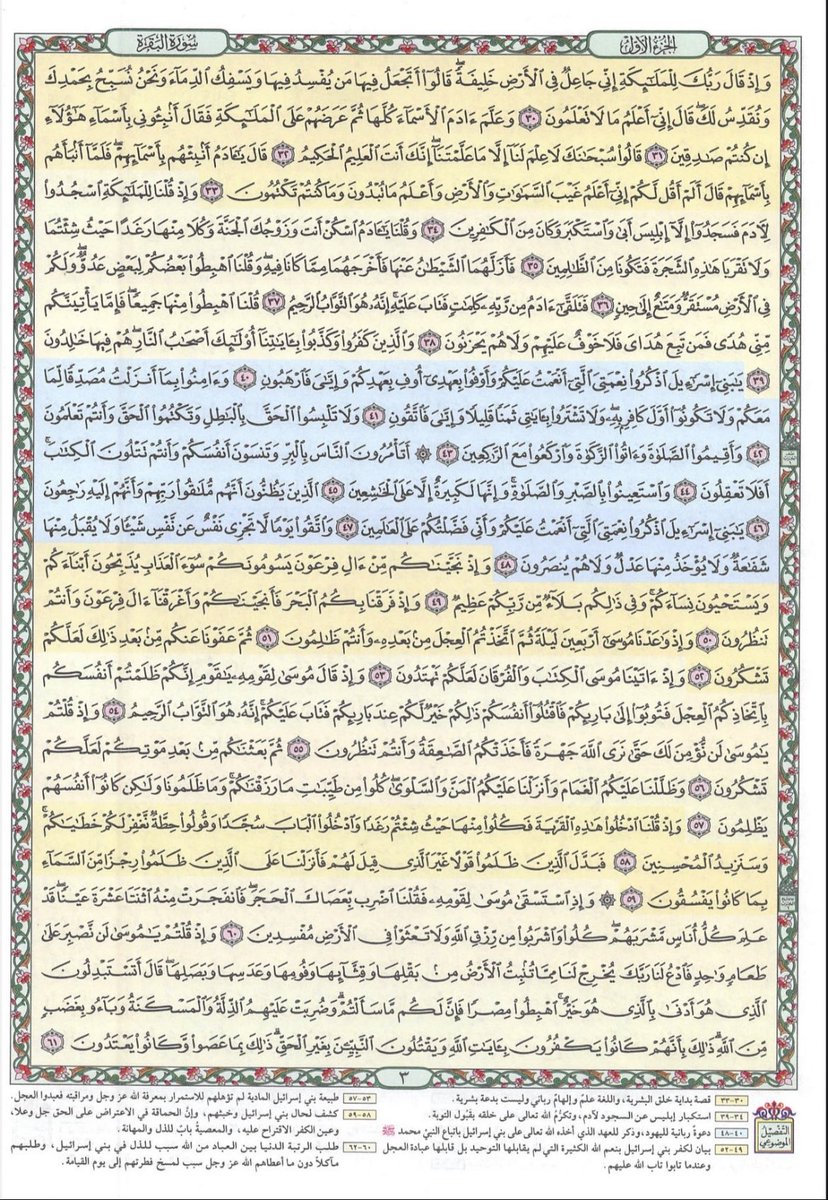 الجزء الأول
سورة البقرة
وَإِذْ قَالَ رَبُّكَ لِلْمَلَٰٓئِكَةِ إِنِّى جَاعِلٌ فِى ٱلْأَرْضِ خَلِيفَةً ۖ قَالُوٓا۟ أَتَجْعَلُ فِيهَا مَن يُفْسِدُ فِيهَا وَيَسْفِكُ ٱلدِّمَآءَ وَنَحْنُ نُسَبِّحُ بِحَمْدِكَ
وَنُقَدِّسُ لَكَ ۖ قَالَ إِنِّىٓ أَعْلَمُ مَا لَا تَعْلَمُونَ ٣٠ وَعَلَّمَ ءَادَمَ ٱلْأَسْمَآءَ كُلَّهَا ثُمَّ عَرَضَهُمْ عَلَى ٱلْمَلَٰٓئِكَةِ فَقَالَ أَنۢبِـُٔونِى بِأَسْمَآءِ هَٰٓؤُلَآءِ
إِن كُنتُمْ صَٰدِقِينَ ٣١ قَالُوا۟ سُبْحَٰنَكَ لَا عِلْمَ لَنَآ إِلَّا مَا عَلَّمْتَنَآ ۖ إِنَّكَ أَنتَ ٱلْعَلِيمُ ٱلْحَكِيمُ ٣٢ قَالَ يَٰٓـَٔادَمُ أَنۢبِئْهُم بِأَسْمَآئِهِمْ ۖ فَلَمَّآ أَنۢبَأَهُم
بِأَسْمَآئِهِمْ قَالَ أَلَمْ أَقُل لَّكُمْ إِنِّىٓ أَعْلَمُ غَيْبَ ٱلسَّمَٰوَٰتِ وَٱلْأَرْضِ وَأَعْلَمُ مَا تُبْدُونَ وَمَا كُنتُمْ تَكْتُمُونَ ٣٣ وَإِذْ قُلْنَا لِلْمَلَٰٓئِكَةِ ٱسْجُدُوا۟
لِـَٔادَمَ فَسَجَدُوٓا۟ إِلَّآ إِبْلِيسَ أَبَىٰ وَٱسْتَكْبَرَ وَكَانَ مِنَ ٱلْكَٰفِرِينَ ٣٤ وَقُلْنَا يَٰٓـَٔادَمُ ٱسْكُنْ أَنتَ وَزَوْجُكَ ٱلْجَنَّةَ وَكُلَا مِنْهَا رَغَدًا حَيْثُ شِئْتُمَا
وَلَا تَقْرَبَا هَٰذِهِ ٱلشَّجَرَةَ فَتَكُونَا مِنَ ٱلظَّٰلِمِينَ ٣٥ فَأَزَلَّهُمَا ٱلشَّيْطَٰنُ عَنْهَا فَأَخْرَجَهُمَا مِمَّا كَانَا فِيهِ ۖ وَقُلْنَا ٱهْبِطُوا۟ بَعْضُكُمْ لِبَعْضٍ عَدُوٌّ ۖ وَلَكُمْ
فِى ٱلْأَرْضِ مُسْتَقَرٌّ وَمَتَٰعٌ إِلَىٰ حِينٍ ٣٦ فَتَلَقَّىٰٓ ءَادَمُ مِن رَّبِّهِۦ كَلِمَٰتٍ فَتَابَ عَلَيْهِ ۚ إِنَّهُۥ هُوَ ٱلتَّوَّابُ ٱلرَّحِيمُ ٣٧ قُلْنَا ٱهْبِطُوا۟ مِنْهَا جَمِيعًا ۖ فَإِمَّا يَأْتِيَنَّكُم
مِّنِّى هُدًى فَمَن تَبِعَ هُدَاىَ فَلَا خَوْفٌ عَلَيْهِمْ وَلَا هُمْ يَحْزَنُونَ ٣٨ وَٱلَّذِينَ كَفَرُوا۟ وَكَذَّبُوا۟ بِـَٔايَٰتِنَآ أُو۟لَٰٓئِكَ أَصْحَٰبُ ٱلنَّارِ ۖ هُمْ فِيهَا خَٰلِدُونَ
٣٩ يَٰبَنِىٓ إِسْرَٰٓءِيلَ ٱذْكُرُوا۟ نِعْمَتِىَ ٱلَّتِىٓ أَنْعَمْتُ عَلَيْكُمْ وَأَوْفُوا۟ بِعَهْدِىٓ أُوفِ بِعَهْدِكُمْ وَإِيَّٰىَ فَٱرْهَبُونِ ٤٠ وَءَامِنُوا۟ بِمَآ أَنزَلْتُ مُصَدِّقًا لِّمَا
مَعَكُمْ وَلَا تَكُونُوٓا۟ أَوَّلَ كَافِرٍۭ بِهِۦ ۖ وَلَا تَشْتَرُوا۟ بِـَٔايَٰتِى ثَمَنًا قَلِيلًا وَإِيَّٰىَ فَٱتَّقُونِ ٤١ وَلَا تَلْبِسُوا۟ ٱلْحَقَّ بِٱلْبَٰطِلِ وَتَكْتُمُوا۟ ٱلْحَقَّ وَأَنتُمْ تَعْلَمُونَ
٤٢ وَأَقِيمُوا۟ ٱلصَّلَوٰةَ وَءَاتُوا۟ ٱلزَّكَوٰةَ وَٱرْكَعُوا۟ مَعَ ٱلرَّٰكِعِينَ ٤٣ ۞ أَتَأْمُرُونَ ٱلنَّاسَ بِٱلْبِرِّ وَتَنسَوْنَ أَنفُسَكُمْ وَأَنتُمْ تَتْلُونَ ٱلْكِتَٰبَ ۚ
أَفَلَا تَعْقِلُونَ ٤٤ وَٱسْتَعِينُوا۟ بِٱلصَّبْرِ وَٱلصَّلَوٰةِ ۚ وَإِنَّهَا لَكَبِيرَةٌ إِلَّا عَلَى ٱلْخَٰشِعِينَ ٤٥ ٱلَّذِينَ يَظُنُّونَ أَنَّهُم مُّلَٰقُوا۟ رَبِّهِمْ وَأَنَّهُمْ إِلَيْهِ رَٰجِعُونَ
٤٦ يَٰبَنِىٓ إِسْرَٰٓءِيلَ ٱذْكُرُوا۟ نِعْمَتِىَ ٱلَّتِىٓ أَنْعَمْتُ عَلَيْكُمْ وَأَنِّى فَضَّلْتُكُمْ عَلَى ٱلْعَٰلَمِينَ ٤٧ وَٱتَّقُوا۟ يَوْمًا لَّا تَجْزِى نَفْسٌ عَن نَّفْسٍ شَيْـًٔا وَلَا يُقْبَلُ مِنْهَا
شَفَٰعَةٌ وَلَا يُؤْخَذُ مِنْهَا عَدْلٌ وَلَا هُمْ يُنصَرُونَ ٤٨ وَإِذْ نَجَّيْنَٰكُم مِّنْ ءَالِ فِرْعَوْنَ يَسُومُونَكُمْ سُوٓءَ ٱلْعَذَابِ يُذَبِّحُونَ أَبْنَآءَكُمْ
وَيَسْتَحْيُونَ نِسَآءَكُمْ ۚ وَفِى ذَٰلِكُم بَلَآءٌ مِّن رَّبِّكُمْ عَظِيمٌ ٤٩ وَإِذْ فَرَقْنَا بِكُمُ ٱلْبَحْرَ فَأَنجَيْنَٰكُمْ وَأَغْرَقْنَآ ءَالَ فِرْعَوْنَ وَأَنتُمْ
تَنظُرُونَ ٥٠ وَإِذْ وَٰعَدْنَا مُوسَىٰٓ أَرْبَعِينَ لَيْلَةً ثُمَّ ٱتَّخَذْتُمُ ٱلْعِجْلَ مِنۢ بَعْدِهِۦ وَأَنتُمْ ظَٰلِمُونَ ٥١ ثُمَّ عَفَوْنَا عَنكُم مِّنۢ بَعْدِ ذَٰلِكَ لَعَلَّكُمْ
تَشْكُرُونَ ٥٢ وَإِذْ ءَاتَيْنَا مُوسَى ٱلْكِتَٰبَ وَٱلْفُرْقَانَ لَعَلَّكُمْ تَهْتَدُونَ ٥٣ وَإِذْ قَالَ مُوسَىٰ لِقَوْمِهِۦ يَٰقَوْمِ إِنَّكُمْ ظَلَمْتُمْ أَنفُسَكُم
بِٱتِّخَاذِكُمُ ٱلْعِجْلَ فَتُوبُوٓا۟ إِلَىٰ بَارِئِكُمْ فَٱقْتُلُوٓا۟ أَنفُسَكُمْ ذَٰلِكُمْ خَيْرٌ لَّكُمْ عِندَ بَارِئِكُمْ فَتَابَ عَلَيْكُمْ ۚ إِنَّهُۥ هُوَ ٱلتَّوَّابُ ٱلرَّحِيمُ ٥٤ وَإِذْ قُلْتُمْ
يَٰمُوسَىٰ لَن نُّؤْمِنَ لَكَ حَتَّىٰ نَرَى ٱللَّهَ جَهْرَةً فَأَخَذَتْكُمُ ٱلصَّٰعِقَةُ وَأَنتُمْ تَنظُرُونَ ٥٥ ثُمَّ بَعَثْنَٰكُم مِّنۢ بَعْدِ مَوْتِكُمْ لَعَلَّكُمْ
تَشْكُرُونَ ٥٦ وَظَلَّلْنَا عَلَيْكُمُ ٱلْغَمَامَ وَأَنزَلْنَا عَلَيْكُمُ ٱلْمَنَّ وَٱلسَّلْوَىٰ ۖ كُلُوا۟ مِن طَيِّبَٰتِ مَا رَزَقْنَٰكُمْ ۖ وَمَا ظَلَمُونَا وَلَٰكِن كَانُوٓا۟ أَنفُسَهُمْ
يَظْلِمُونَ ٥٧ وَإِذْ قُلْنَا ٱدْخُلُوا۟ هَٰذِهِ ٱلْقَرْيَةَ فَكُلُوا۟ مِنْهَا حَيْثُ شِئْتُمْ رَغَدًا وَٱدْخُلُوا۟ ٱلْبَابَ سُجَّدًا وَقُولُوا۟ حِطَّةٌ نَّغْفِرْ لَكُمْ خَطَٰيَٰكُمْ ۚ
وَسَنَزِيدُ ٱلْمُحْسِنِينَ ٥٨ فَبَدَّلَ ٱلَّذِينَ ظَلَمُوا۟ قَوْلًا غَيْرَ ٱلَّذِى قِيلَ لَهُمْ فَأَنزَلْنَا عَلَى ٱلَّذِينَ ظَلَمُوا۟ رِجْزًا مِّنَ ٱلسَّمَآءِ
بِمَا كَانُوا۟ يَفْسُقُونَ ٥٩ ۞ وَإِذِ ٱسْتَسْقَىٰ مُوسَىٰ لِقَوْمِهِۦ فَقُلْنَا ٱضْرِب بِّعَصَاكَ ٱلْحَجَرَ ۖ فَٱنفَجَرَتْ مِنْهُ ٱثْنَتَا عَشْرَةَ عَيْنًا ۖ قَدْ
عَلِمَ كُلُّ أُنَاسٍ مَّشْرَبَهُمْ ۖ كُلُوا۟ وَٱشْرَبُوا۟ مِن رِّزْقِ ٱللَّهِ وَلَا تَعْثَوْا۟ فِى ٱلْأَرْضِ مُفْسِدِينَ ٦٠ وَإِذْ قُلْتُمْ يَٰمُوسَىٰ لَن نَّصْبِرَ عَلَىٰ
طَعَامٍ وَٰحِدٍ فَٱدْعُ لَنَا رَبَّكَ يُخْرِجْ لَنَا مِمَّا تُنۢبِتُ ٱلْأَرْضُ مِنۢ بَقْلِهَا وَقِثَّآئِهَا وَفُومِهَا وَعَدَسِهَا وَبَصَلِهَا ۖ قَالَ أَتَسْتَبْدِلُونَ
ٱلَّذِى هُوَ أَدْنَىٰ بِٱلَّذِى هُوَ خَيْرٌ ۚ ٱهْبِطُوا۟ مِصْرًا فَإِنَّ لَكُم مَّا سَأَلْتُمْ ۗ وَضُرِبَتْ عَلَيْهِمُ ٱلذِّلَّةُ وَٱلْمَسْكَنَةُ وَبَآءُو بِغَضَبٍ
مِّنَ ٱللَّهِ ۗ ذَٰلِكَ بِأَنَّهُمْ كَانُوا۟ يَكْفُرُونَ بِـَٔايَٰتِ ٱللَّهِ وَيَقْتُلُونَ ٱلنَّبِيِّـۧنَ بِغَيْرِ ٱلْحَقِّ ۗ ذَٰلِكَ بِمَا عَصَوا۟ وَّكَانُوا۟ يَعْتَدُونَ ٦١
٣
التفصيل الموضوعي
٣٠-٣٣ قصة بداية خلق البشرية، واللغة علم وإلهام رباني وليست بدعة بشرية.
٣٤-٣٩ استكبار إبليس عن السجود لآدم، وتكرُّم الله تعالى على خلقه بقبُول التوبة.
٤٠-٤٨ دعوةٌ ربانية لليهود، وذكر للعهد الذي أخذه الله تعالى على بني إسرائيل باتباع النبيّ محمد ﷺ
٤٩-٥٢ بيان لكفر بني إسرائيل بنعم الله الكثيرة التي لم يقابلها التوحيد بل قابلها عبادة العجل
وعندما تابوا تاب الله عليهم.
٥٣-٥٧ طبيعة بني إسرائيل المادية لم تؤهلهم للاستمرار بمعرفة الله عز وجل ومراقبته فعبدوا العجل.
٥٨-٥٩ كشف لحال بني إسرائيل وخبثهم، وإنَّ الحماقة في الاعتراض على الحق جل وعلا،
وعين الكفر الاقتراح عليه، والمعصيةُ بابٌ للذل والمهانة.
٦٠-٦٢ طلب الرتبة الدنيا بين العباد من الله سبب للذل في بني إسرائيل، وطلبهم
مآكلاً دون ما أعطاهم الله عز وجل سبب لمسخ فطرتهم إلى يوم القيامة.